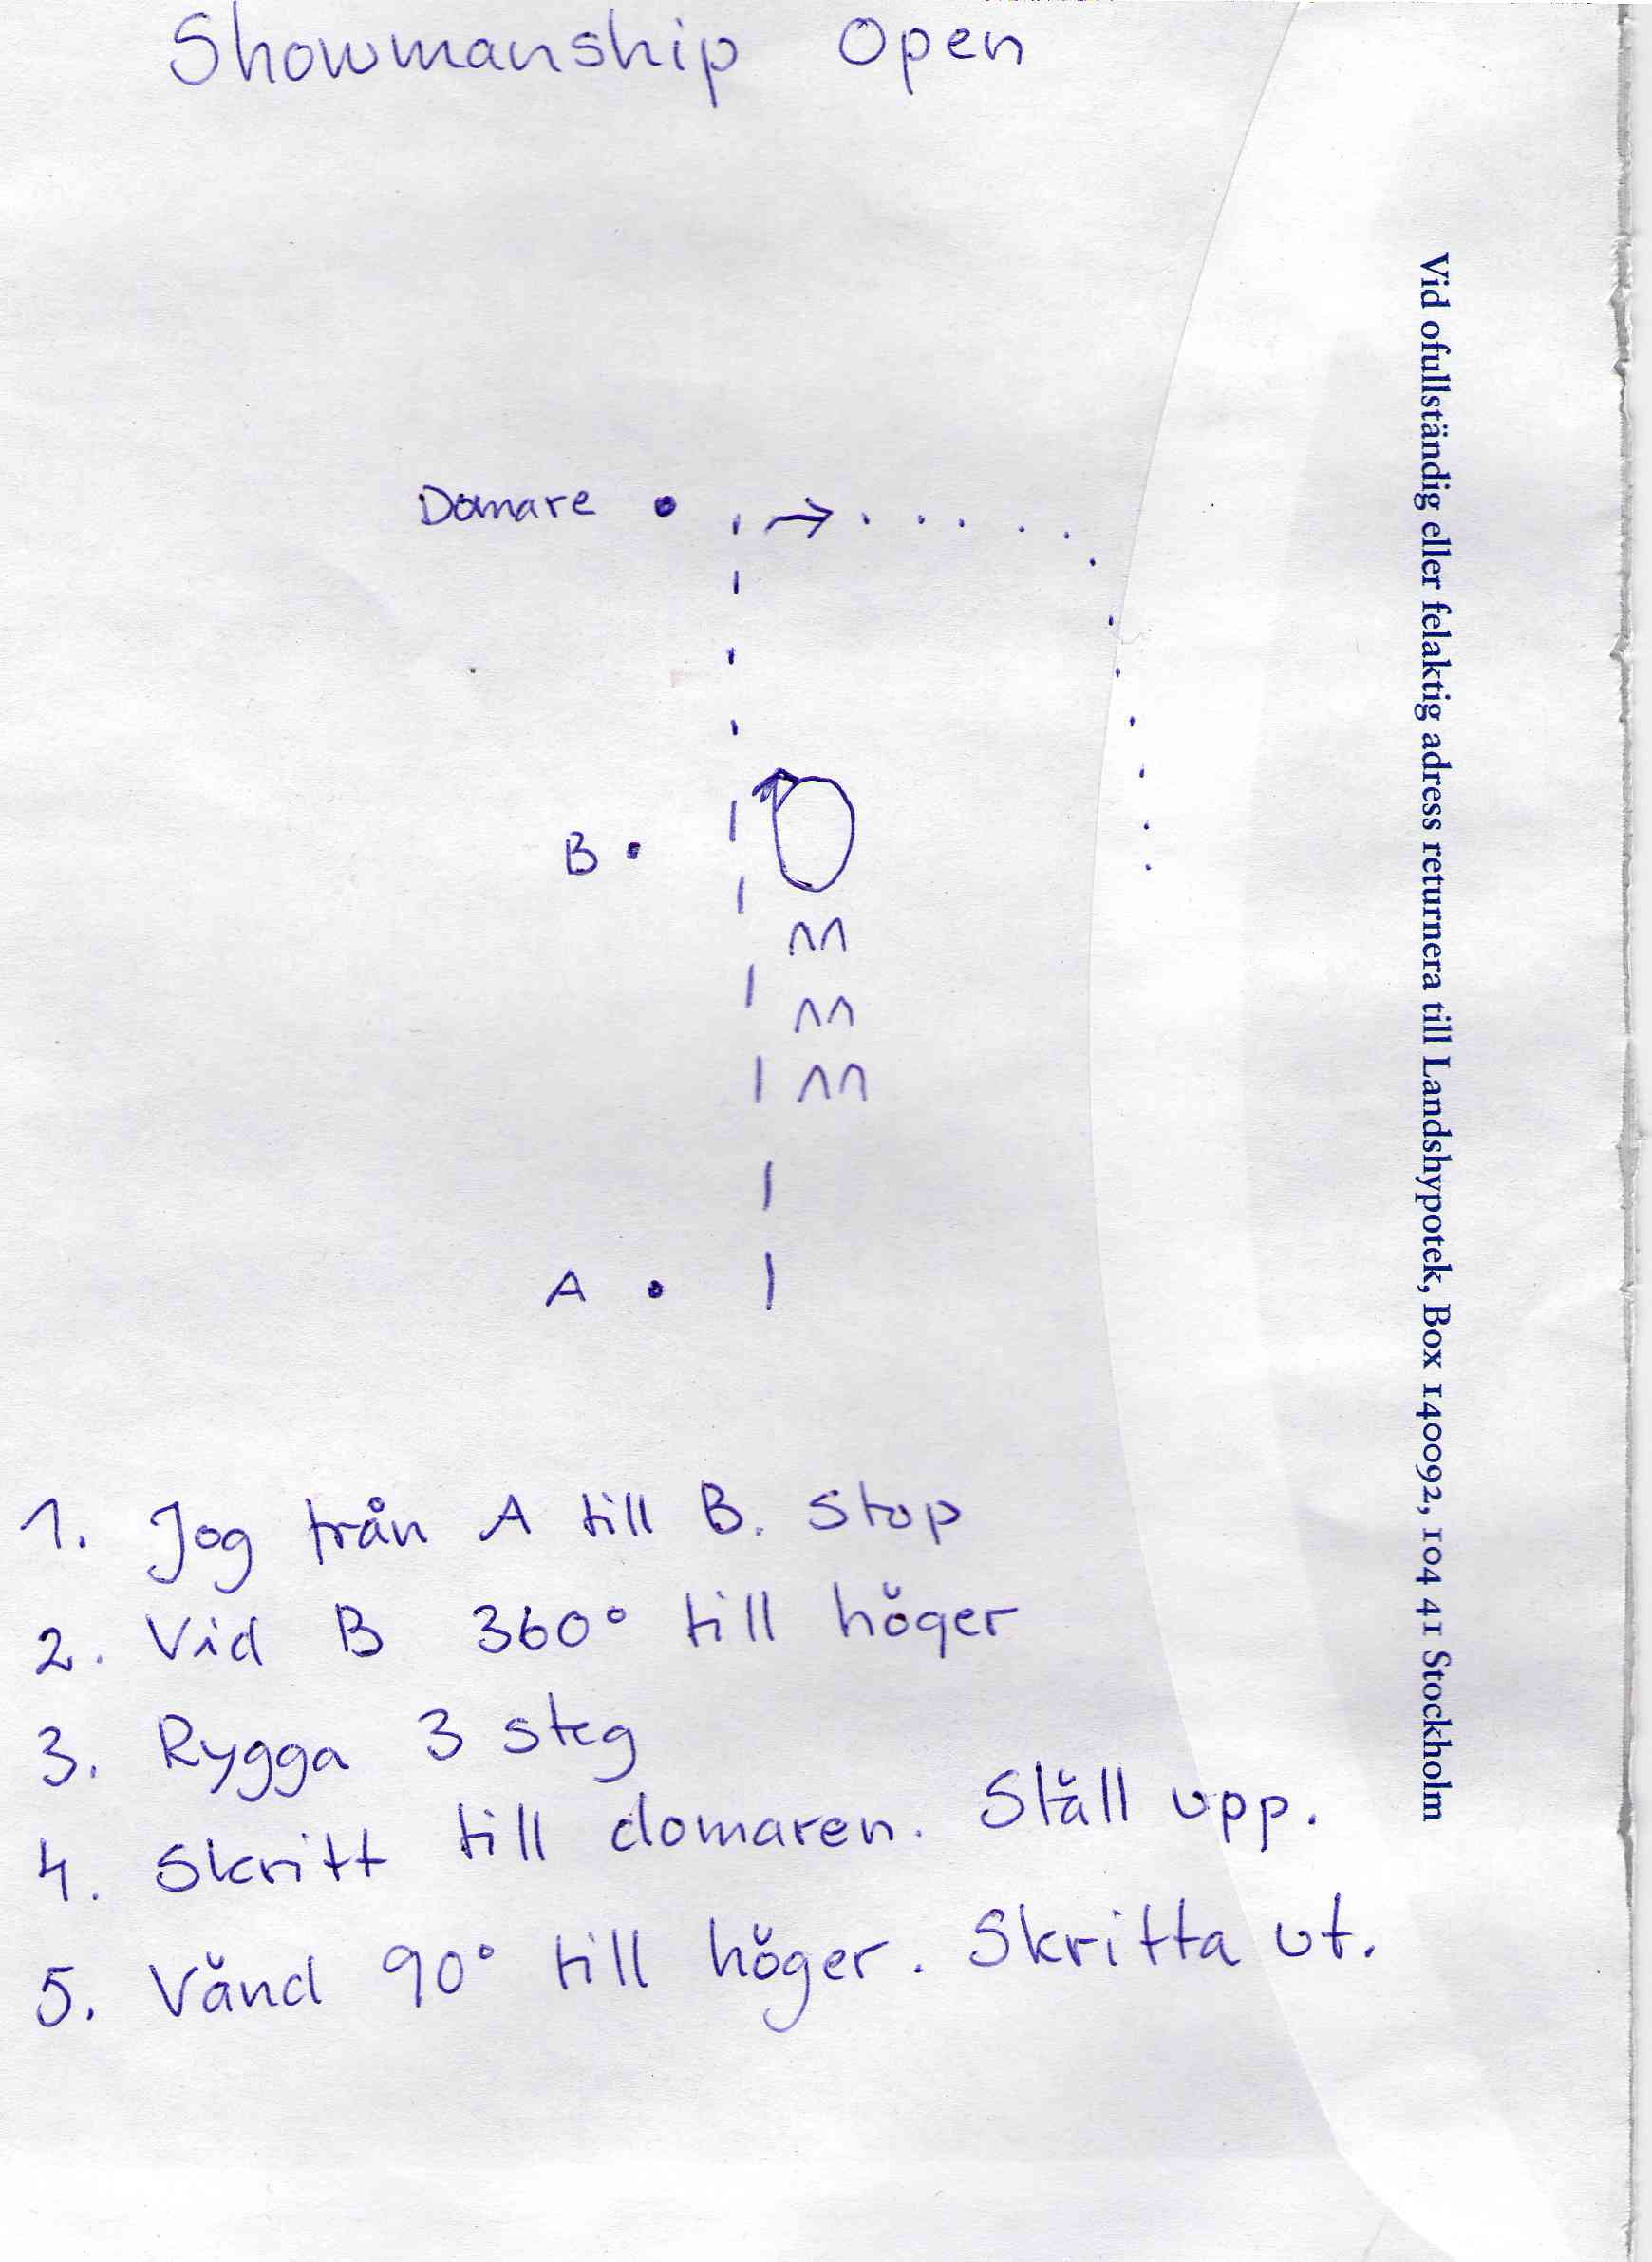 Showmanship Open
Domare
B
A
1. Jog från A till B. Stop
2. Vid B 360° till höger
3. Rygga 3 steg
4. Skritt till domaren. Ställ upp.
5. Vänd 90° till höger. Skritta ut.
Vid ofullständig eller felaktig adress returnera till Landshypotek, Box 140092, 104 41 Stockholm